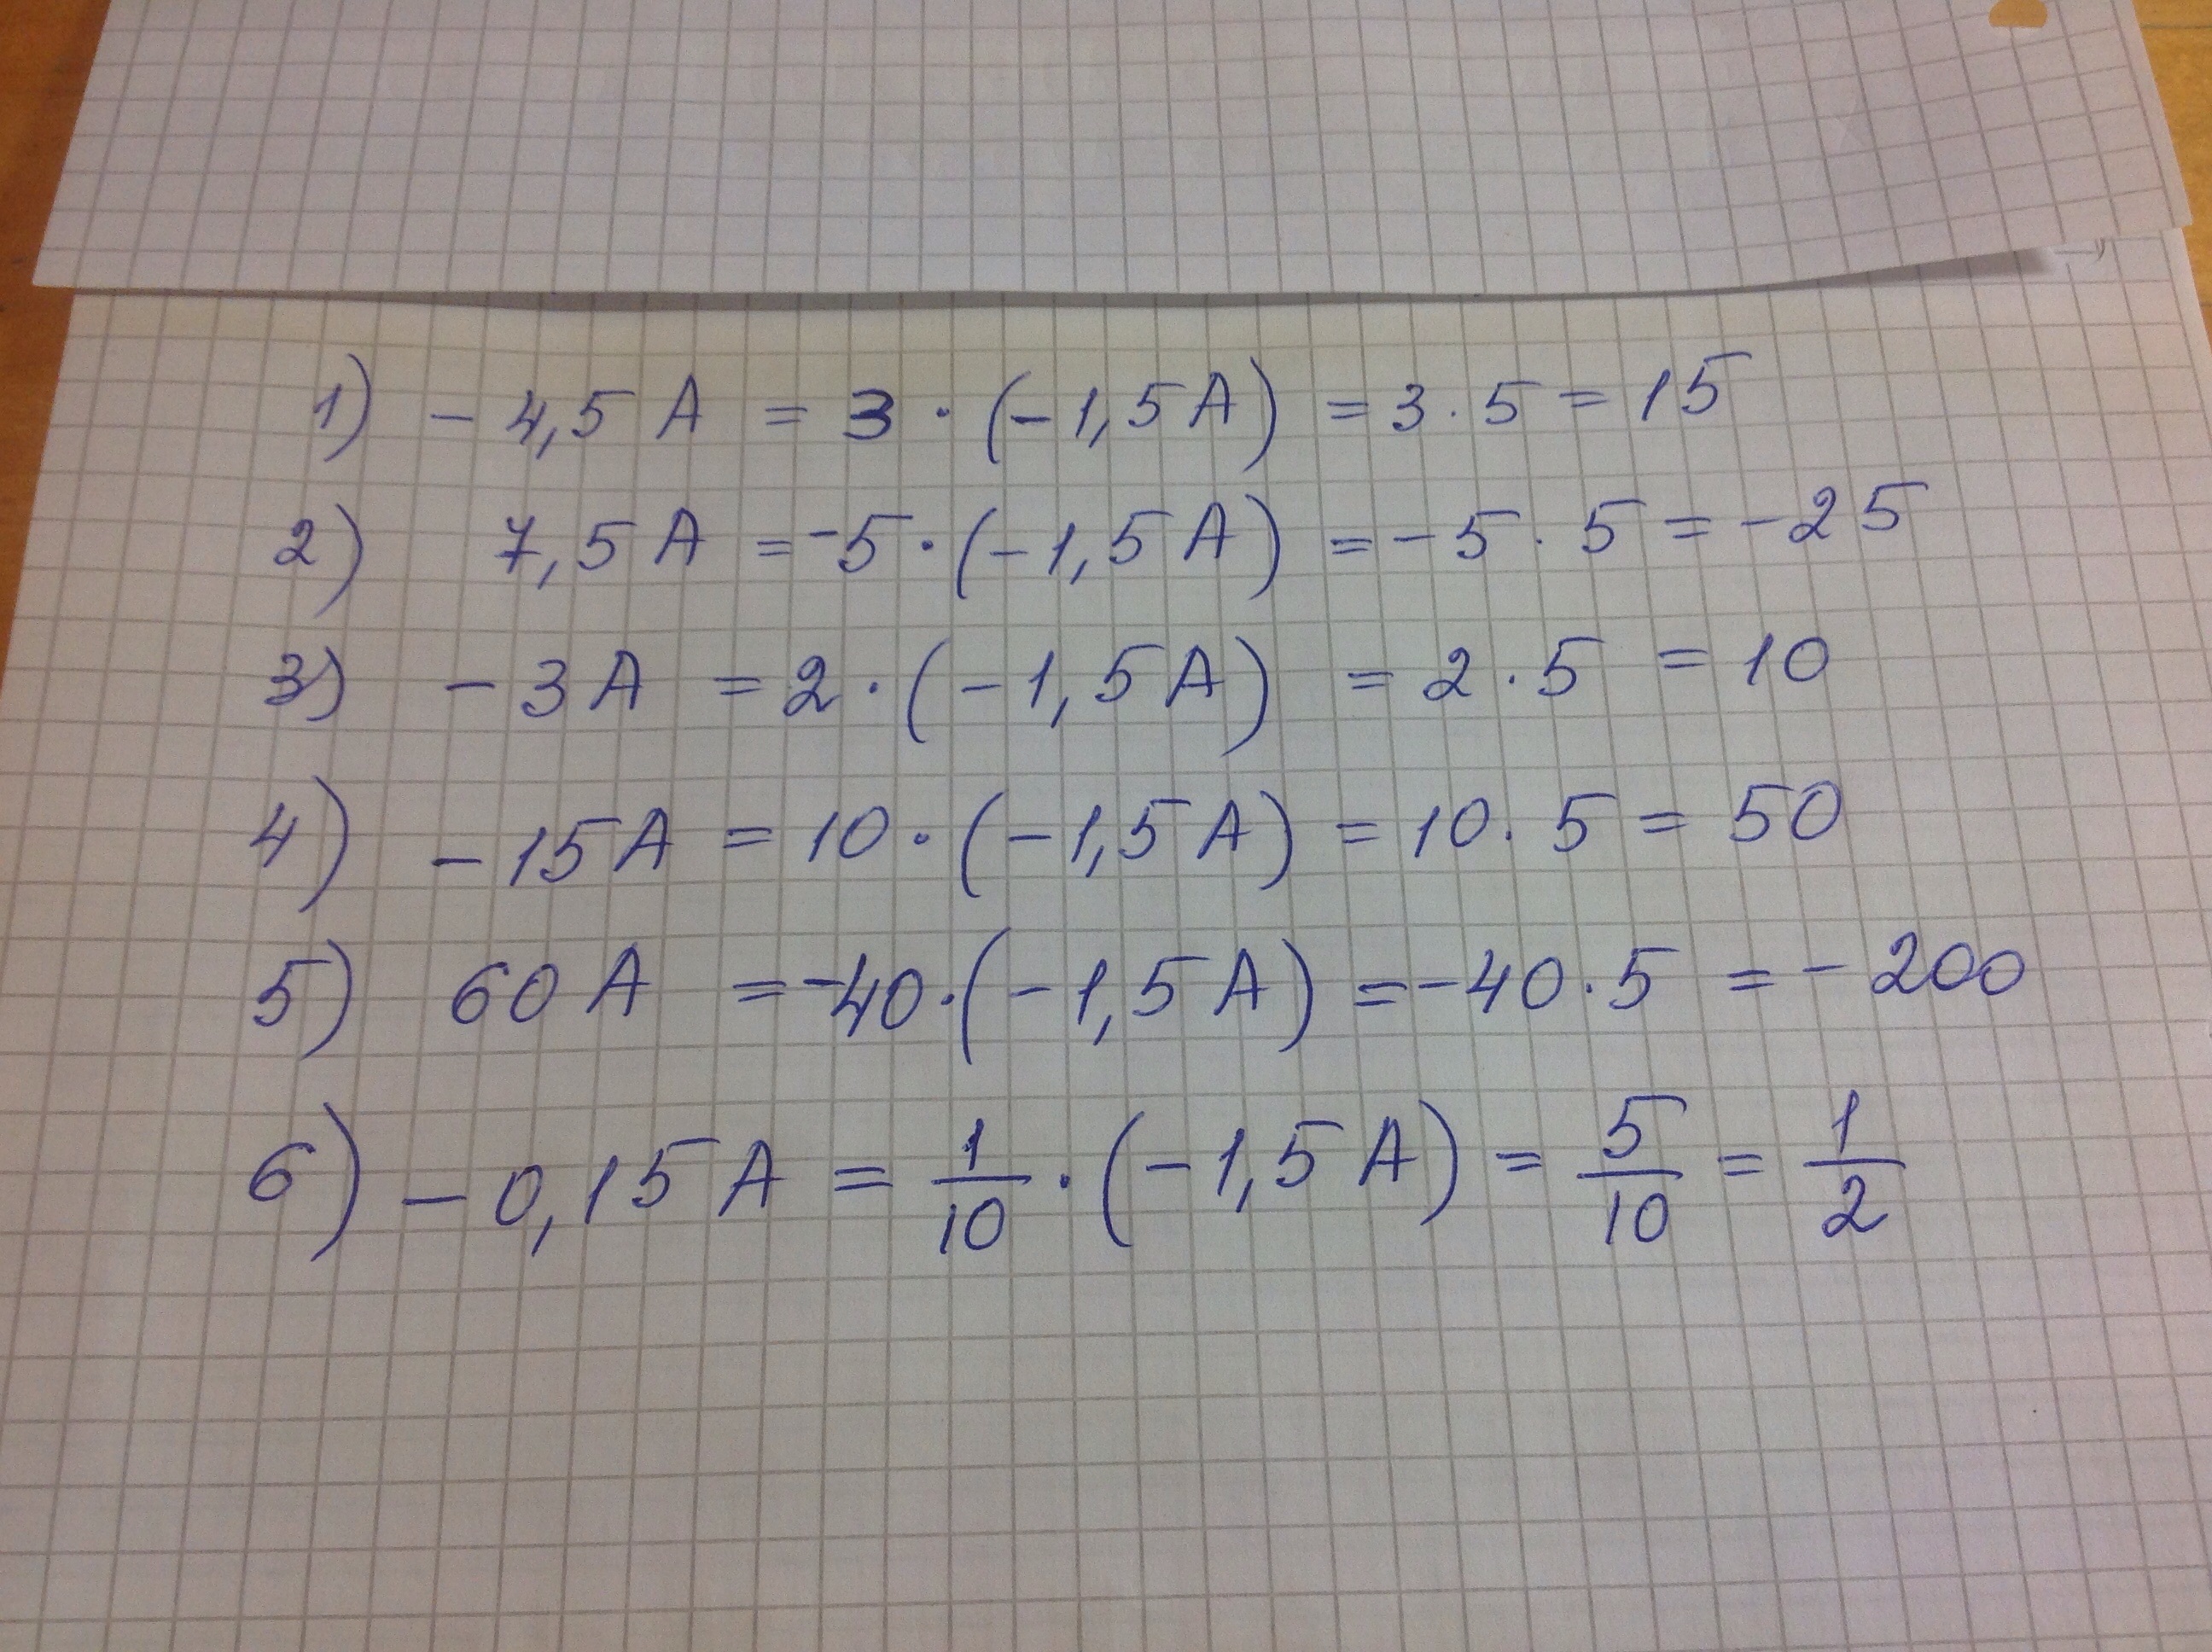 1) - 4,5 A = 3 · (-1,5 A) = 3 · 5 = 15
2) 7,5 A = -5 · (-1,5 A) = -5 · 5 = -25
3) - 3 A = 2 · (-1,5 A) = 2 · 5 = 10
4) - 15 A = 10 · (-1,5 A) = 10 · 5 = 50
5) 60 A = -40 · (-1,5 A) = -40 · 5 = -200
6) - 0,15 A = 1/10 · (-1,5 A) = 5/10 = 1/2